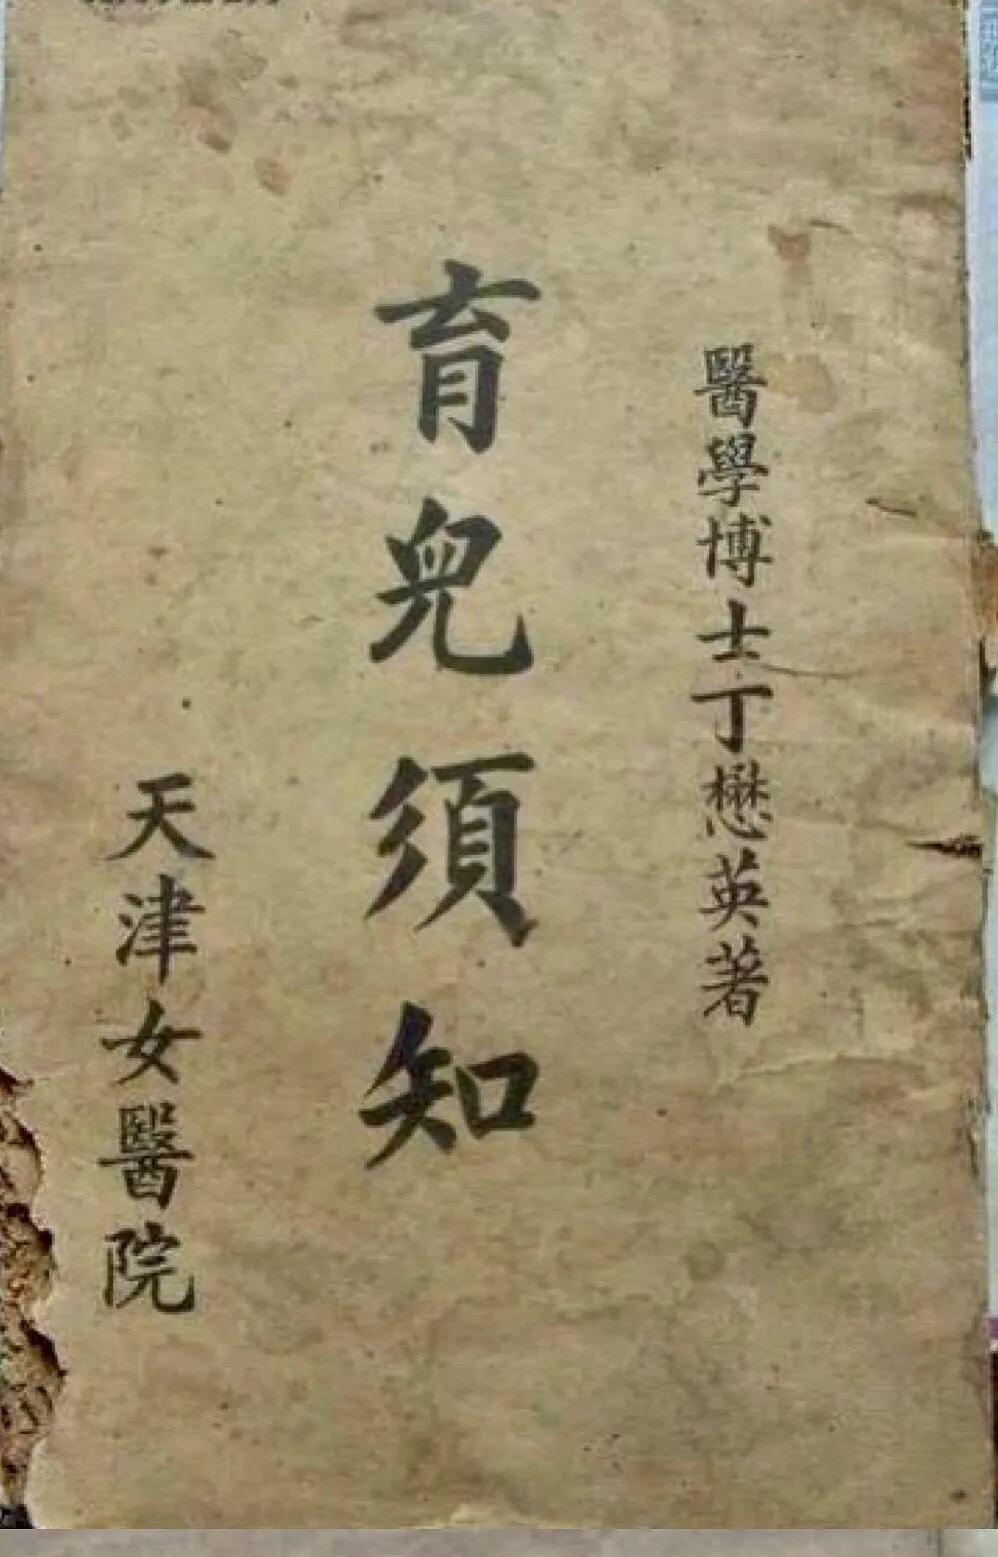 醫學博士丁懋英著
育兒須知
天津女醫院